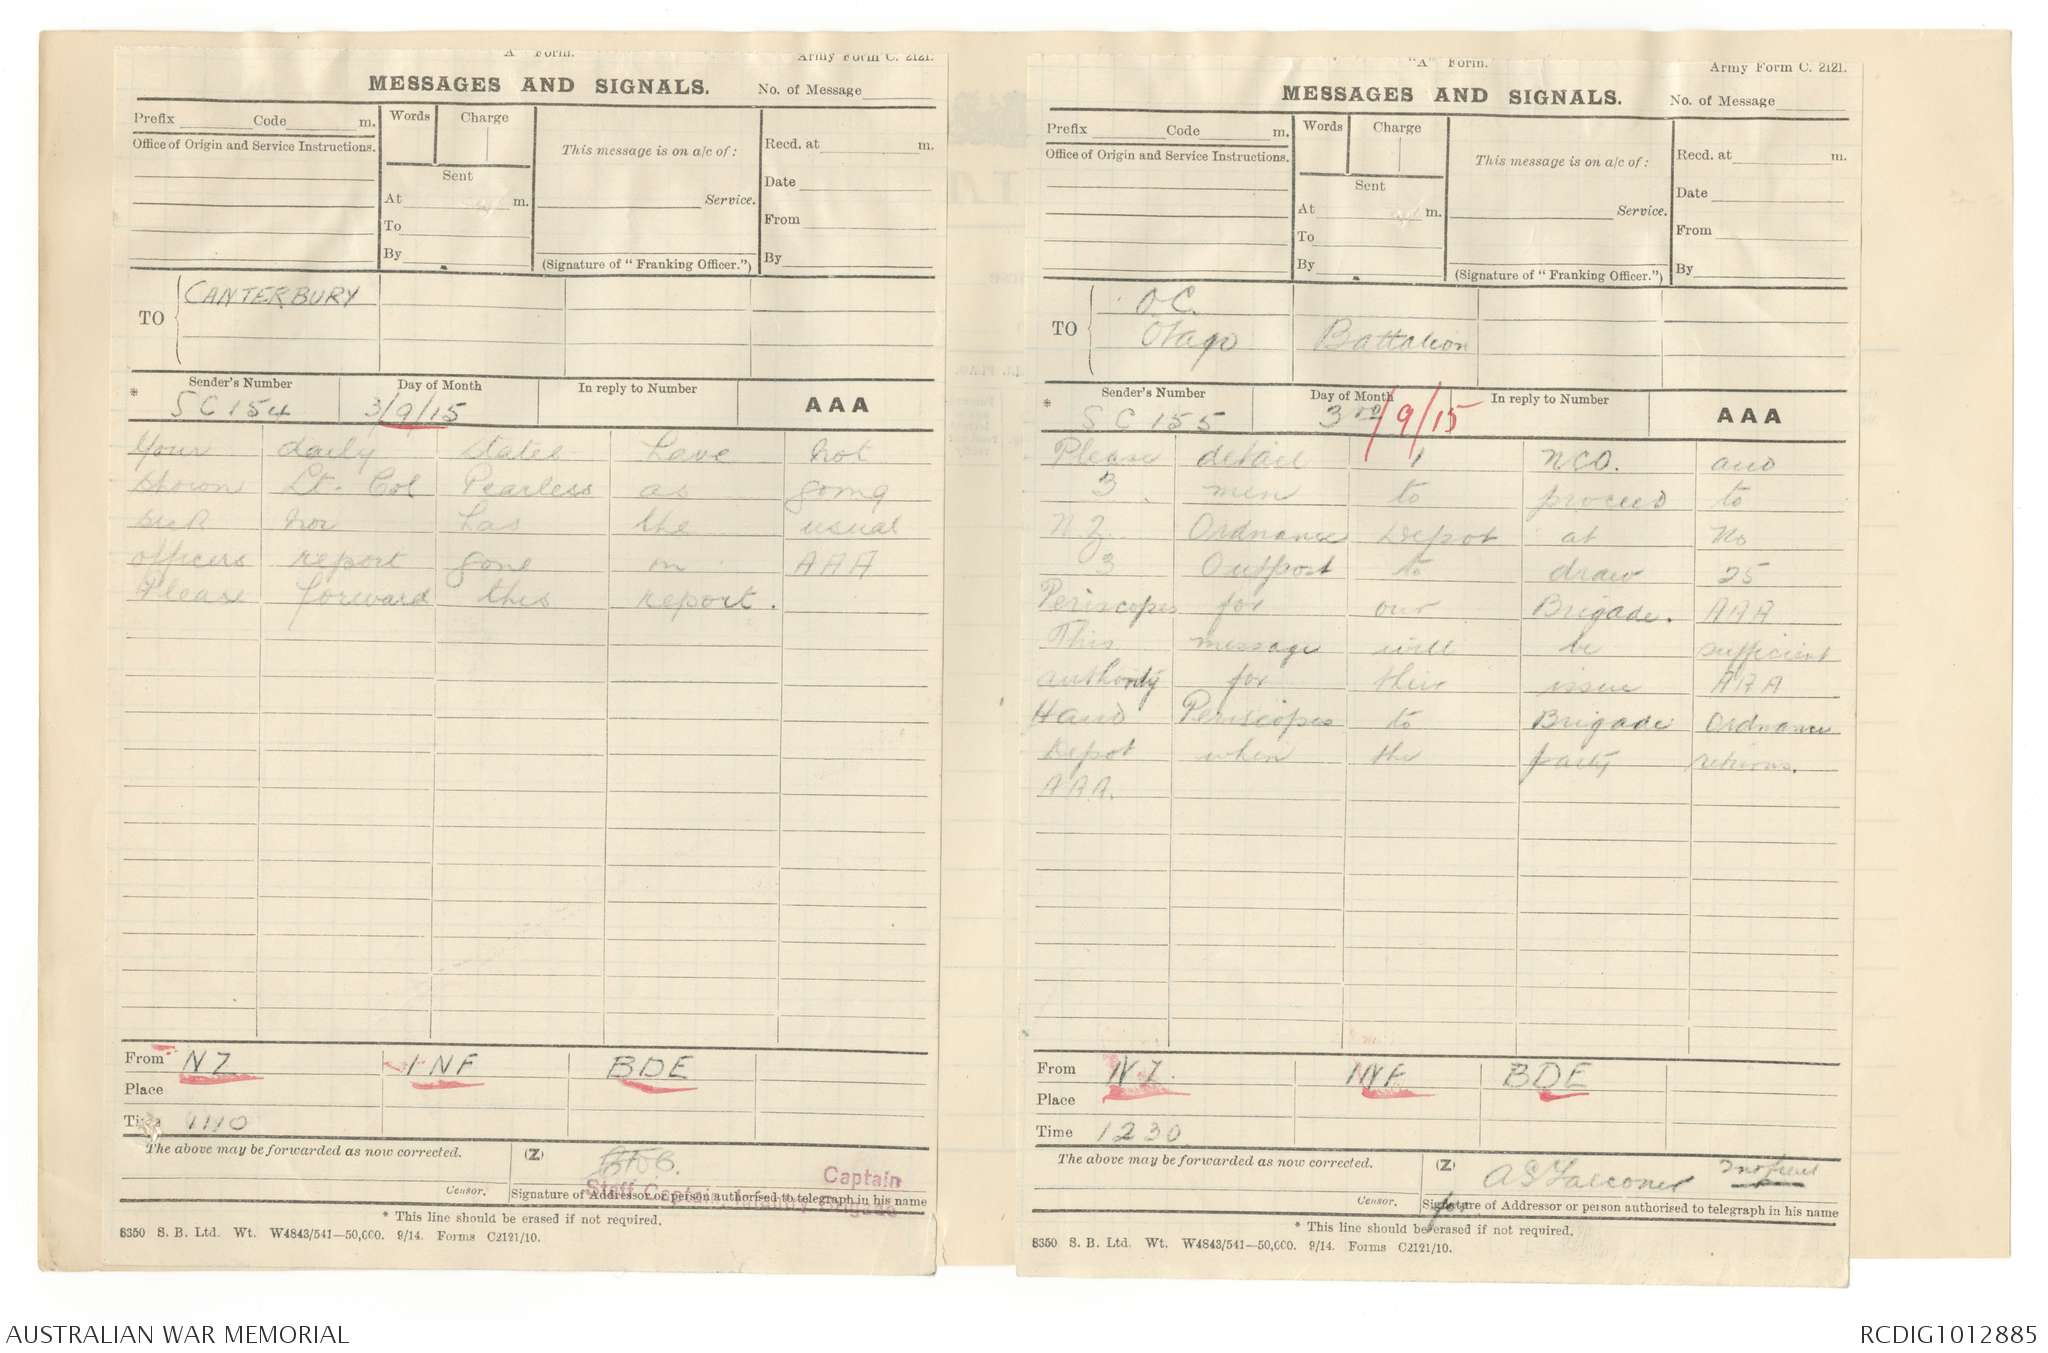 "A" Form.
Army Form C. 2121.
MESSAGES AND SIGNALS.
No. of Message
Prefix Code m.
Words Charge
This message is on a/c of:
Recd. at m.
Office of Origin and Service Instructions.
Sent
Date
At m.
Service.
From
To
By
(Signature of "Franking Officer.")
By
TO
CANTERBURY
* Sender's Number
Day of Month
In reply to Number
AAA
SC 154
3/9/15
Your daily states have not
shown Lt. Col Pearless as going
sick nor has the usual
officers report gone in AAA
Please forward this report.
From NZ INF BDE
Place
Time 1110
The above may be forwarded as now corrected.
(Z)
Captain
Censor.
Signature of Addressor or person authorised to telegraph in his name
Staff Captain, Infantry Brigade
* This line should be erased if not required.
8350 S. B. Ltd. Wt. W4843/541—50,000. 9/14. Forms C2121/10.
"A" Form.
Army Form C. 2121.
MESSAGES AND SIGNALS.
No. of Message
Prefix Code m.
Words Charge
This message is on a/c of:
Recd. at m.
Office of Origin and Service Instructions.
Sent
Date
At m.
Service.
From
To
By
(Signature of "Franking Officer.")
By
TO
O.C.
Otago Battalion
* Sender's Number
Day of Month
In reply to Number
AAA
SC 155
3rd/9/15
Please detail 1 NCO. and
3 men to proceed to
N.Z. Ordnance Depot at No
3 Outpost to draw 25
Periscopes for our Brigade. AAA
This message will be sufficient
authority for their issue AAA
Hand Periscopes to Brigade Ordnance
Depot when the party returns.
AAA.
From N.Z. INF BDE
Place
Time 1230
The above may be forwarded as now corrected.
(Z)
A S Falconer
Censor.
Signature of Addressor or person authorised to telegraph in his name
for
* This line should be erased if not required.
8350 S. B. Ltd. Wt. W4843/541—50,000. 9/14. Forms C2121/10.
AUSTRALIAN WAR MEMORIAL
RCDIG1012885